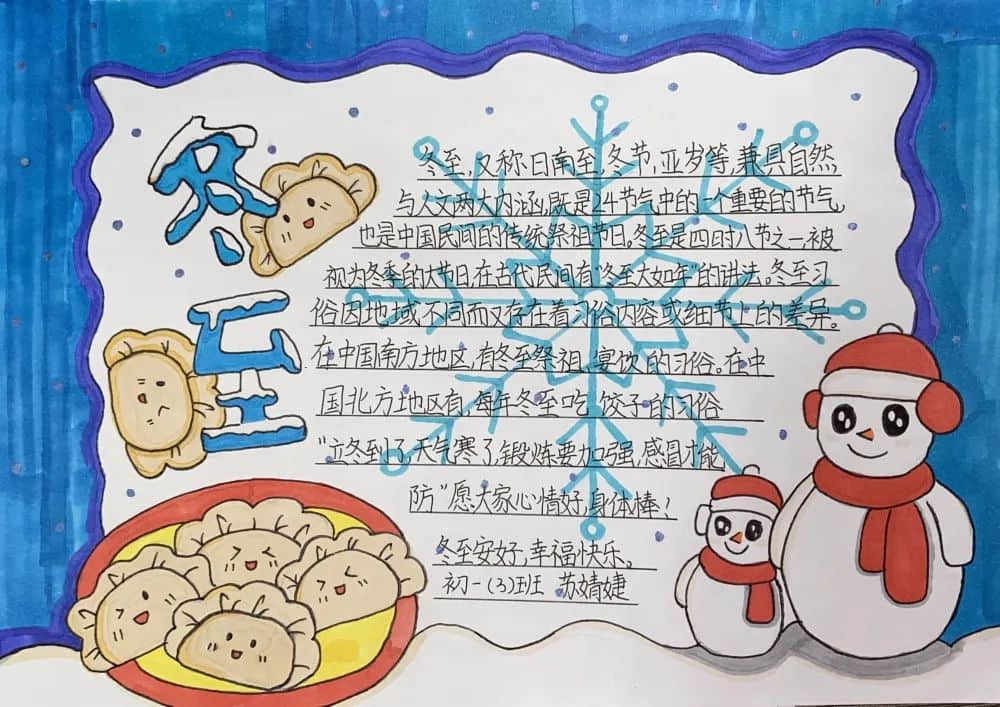 冬至
冬至,又称日南至、冬节、亚岁等,兼具自然
与人文两大内涵,既是24节气中的一个重要的节气,
也是中国民间的传统祭祖节日。冬至是四时八节之一,被
视为冬季的大节日,在古代民间有“冬至大如年”的讲法。冬至习
俗因地域不同而又存在着习俗内容或细节上的差异。
在中国南方地区,有冬至祭祖、宴饮的习俗。在中
国北方地区有,每年冬至吃饺子的习俗
“立冬到了,天气寒了,锻炼要加强,感冒才能
防”愿大家心情好,身体棒!
冬至安好,幸福快乐。
初一(3)班 苏婧婕